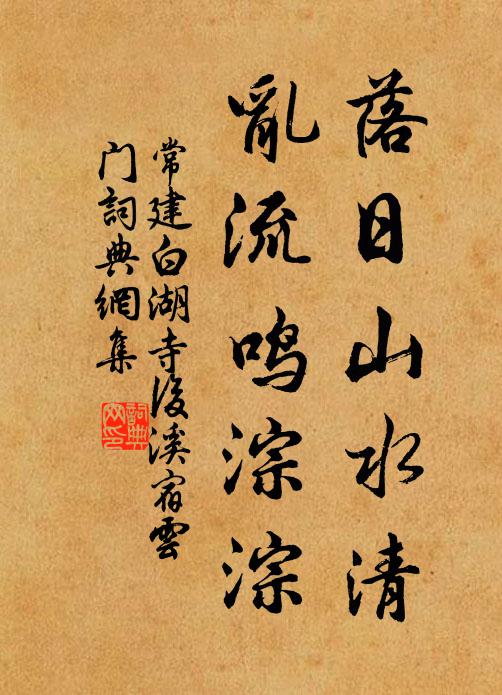 落日山水清
亂流鳴淙淙
常建白湖寺後溪宿雲
门詞典網集
詞典
网印